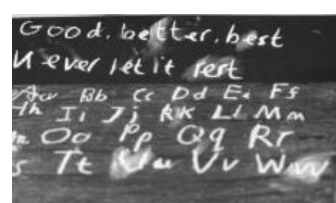 Good, better, best
Never let it rest
Aa Bb Cc Dd Ee Ff
Hh Ii Jj Kk Ll Mm
Oo Pp Qq Rr
s Tt Uu Vv Ww